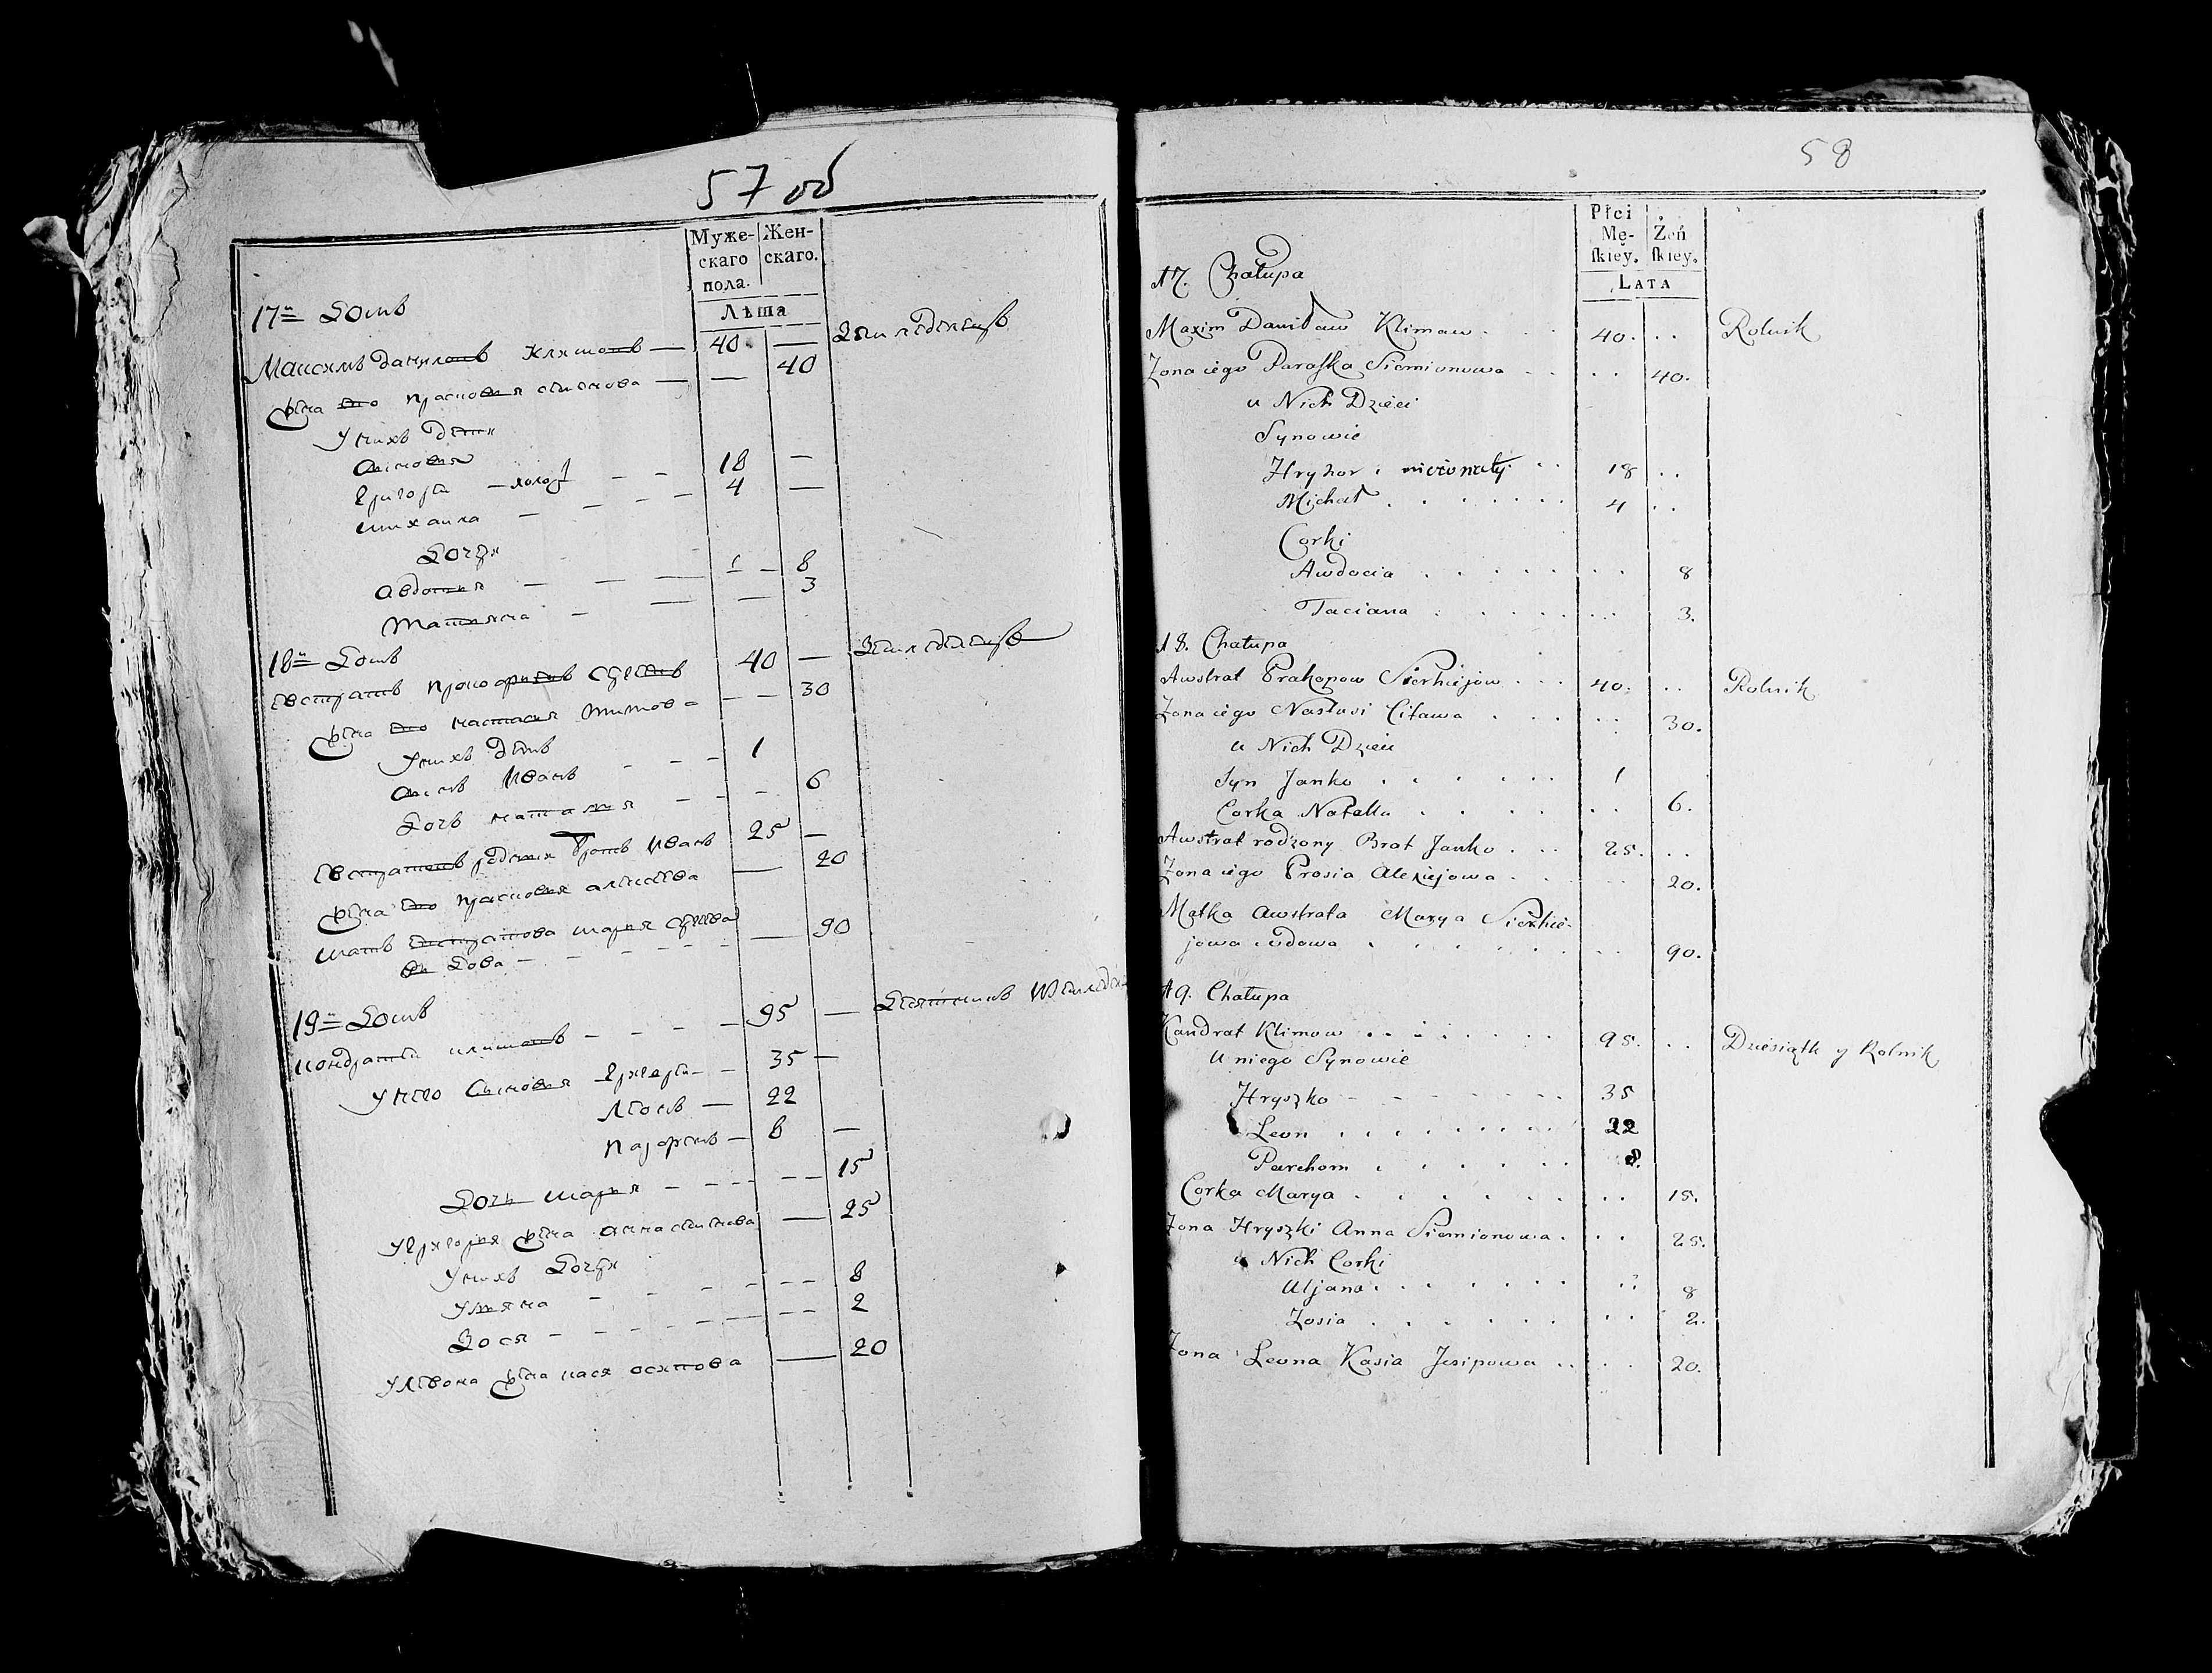 57 об
Муже-
скаго
пола.
Жен-
скаго.
Лѣта
17й Домъ
Максимъ Даниловъ Климовъ — 40 — Земледелецъ
жена его Прасковия Семенова — — 40
У нихъ дети
сыновия
Григорей — холост — — 18 —
Михайла — — — — 4 —
Дочери
Авдотия — — — — 8
Татияна — — — 3
18й Домъ
Евстратъ Прокофиевъ Сергеевъ 40 — Земледелецъ
жена его Настасия Титова — — 30
У нихъ дети
сынъ Иванъ — — — 1
Дочь Наталия — — — 6
Евстратовъ родной братъ Иванъ 25 —
жена его Прасковия Алексеева — 20
Мать Евстратова Мария Сергеева
вдова — — — — — 90
19й Домъ
Кондратей Климовъ — — — — 95 — Десятникъ
У него сыновия Григорей — 35 —
Леонъ — 22
Парфенъ — 8 —
Дочь Мария — — — — 15
У Григория жена Анна Семенова — 25
У нихъ Дочери
Улияна — — — — — 8
Зося — — — — — — 2
У Леона жена Кася Осипова — 20
58
Płci
Mę-
skiey.
Żeń
skiey.
LATA
17. Chałupa
Maxim Daniław Klimaw . . . 40. . . Rolnik
Zona iego Paraska Siemionowa . . . . 40.
u Nich Dzieci
Synowie
Hryhor . nieżonaty . . 18 . .
Michał . . . . . . . 4 . .
Corki
Awdocia . . . . . . . . 8
Taciana . . . . . . . . 3.
18. Chałupa
Awstrat Prakopow Sierhiejow . . . 40. . . Rolnik
Zona iego Nastusi Citawa . . . . . 30.
u Nich Dzieci
Syn Janko . . . . . . 1
Corka Natalla . . . . . . 6.
Awstrat rodzony Brat Janko . . . 25. . .
Zona iego Prosia Alexiejowa . . . . 20.
Matka Awstrata Marya Sierhie-
jowa wdowa . . . . . . . . 90.
19. Chałupa
Kandrat Klimow . . . . . . . 95. . . Dziesiątk y Rolnik
U niego Synowie
Hryszko . . . . . . . 35
Leon . . . . . . . . 22
Parchom . . . . . . 8.
Corka Marya . . . . . . . . 15.
Zona Hryszki Anna Siemionowa . . . 25.
u Nich Corki
Uljana . . . . . . . . 8
Zosia . . . . . . . . 2.
Zona Leona Kasia Jesipowa . . . . 20.